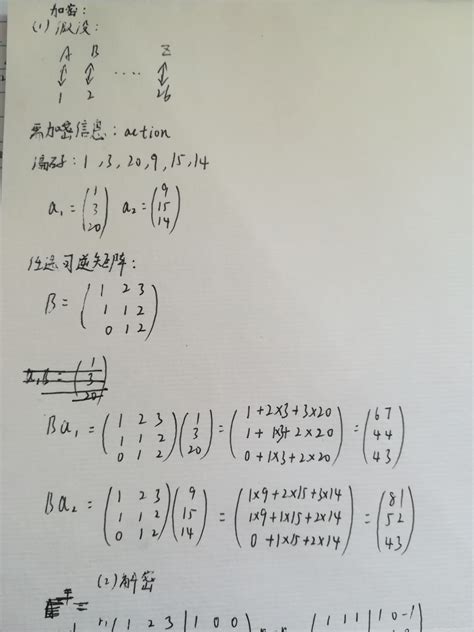 加密:
(1) 假设:
A B Z
↕ ↕ .... ↕
1 2 26
要加密信息: action
编码: 1,3,20,9,15,14
a₁=(1 3 20) a₂=(9 15 14)
任选可逆矩阵:
B=(1 2 3
1 1 2
0 1 2)
a₁B=(1 3 20)
Ba₁=(1 2 3 1 1 2 0 1 2)(1 3 20)=(1+2×3+3×20 1+1×3+2×20 0+1×3+2×20)=(67 44 43)
Ba₂=(1 2 3 1 1 2 0 1 2)(9 15 14)=(1×9+2×15+3×14 1×9+1×15+2×14 0+1×15+2×14)=(81 52 43)
(2) 解密
1 2 3 | 1 0 0 1 1 1 | 1 0 -1